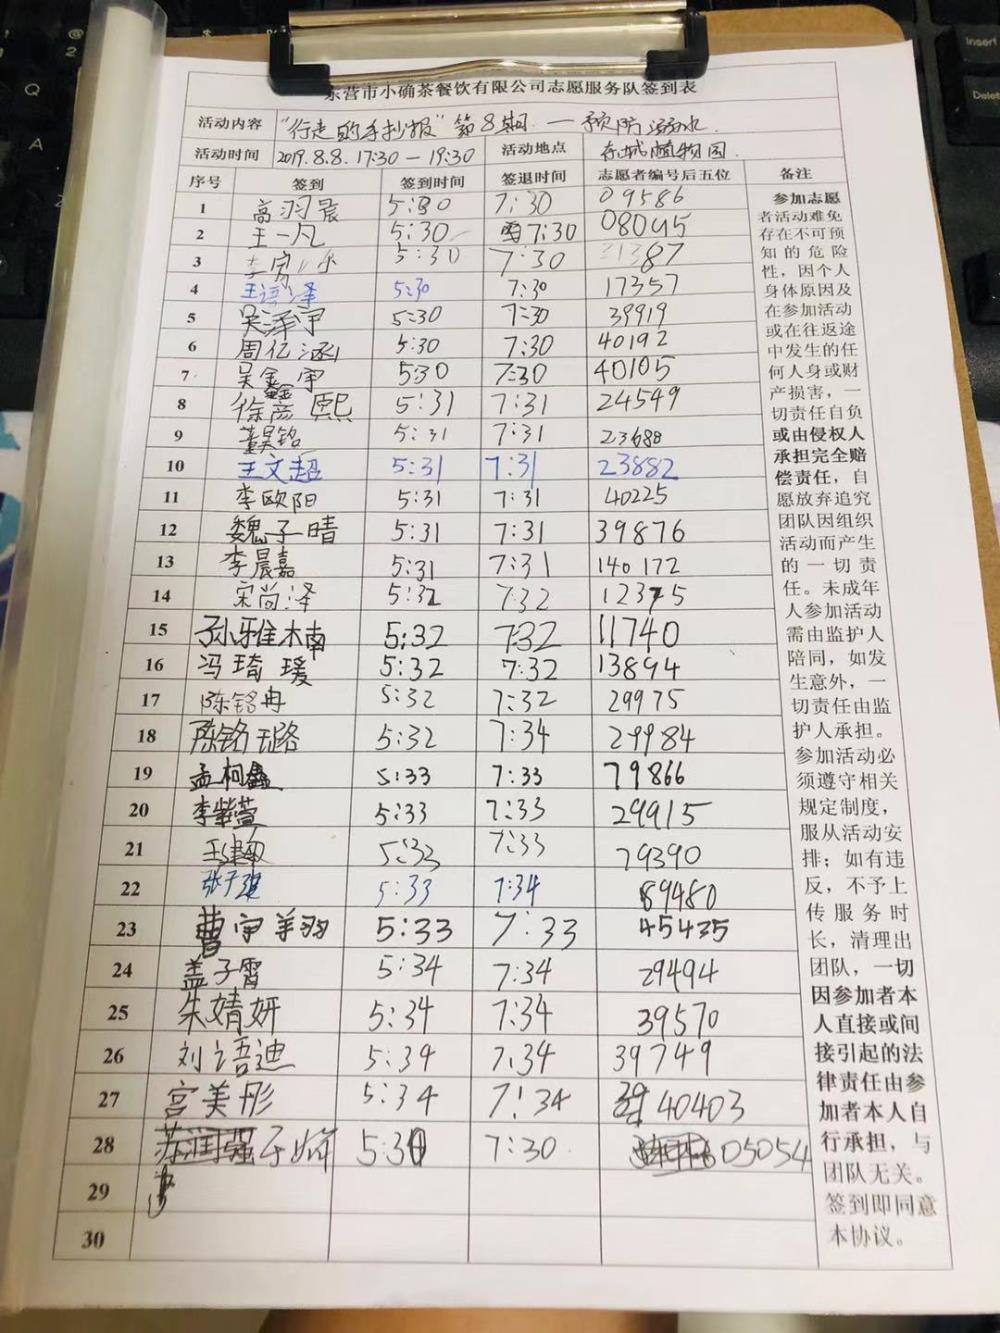 东营市小确茶餐饮有限公司志愿服务队签到表
活动内容 "行走的手抄报"第8期.—预防溺水.
活动时间 2019.8.8. 17:30—19:30 活动地点 东城植物园.
序号 签到 签到时间 签退时间 志愿者编号后五位 备注
1 高羽晨 5:30 7:30 09586
2 王一凡 5:30 7:30 08045
3 5:30 7:30
4 王语泽 5:30 7:30 17357
5 吴泽宇 5:30 7:30 39919
6 周亿涵 5:30 7:30 40192
7 吴鑫宇 5:30 7:30 40105
8 徐彦熙 5:31 7:31 24549
9 5:31 7:31 23688
10 王文超 5:31 7:31 23882
11 李欧阳 5:31 7:31 40225
12 魏子晴 5:31 7:31 39876
13 李晨嘉 5:31 7:31 140172
14 宋尚泽 5:32 7:32 12375
15 孙雅楠 5:32 7:32 11740
16 冯琦瑗 5:32 7:32 13894
17 陈铭冉 5:32 7:32 29975
18 陈铭璐 5:32 7:34 29984
19 孟柯鑫 5:33 7:33 79866
20 李紫萱 5:33 7:33 29915
21 5:33 7:33 79390
22 5:33 7:34 89480
23 曹宇羊羽 5:33 7:33 45435
24 盖子霄 5:34 7:34 29494
25 朱婧妍 5:34 7:34 39570
26 刘语迪 5:34 7:34 39749
27 宫美彤 5:34 7:34 40403
28 5:30 7:30 05054
29
30
参加志愿
者活动难免
存在不可预
知的危险
性，因个人
身体原因及
在参加活动
或在往返途
中发生的任
何人身或财
产损害，一
切责任自负
或由侵权人
承担完全赔
偿责任，自
愿放弃追究
团队因组织
活动而产生
的一切责
任。未成年
人参加活动
需由监护人
陪同，如发
生意外，一
切责任由监
护人承担。
参加活动必
须遵守相关
规定制度，
服从活动安
排；如有违
反，不予上
传服务时
长，清理出
团队，一切
因参加者本
人直接或间
接引起的法
律责任由参
加者本人自
行承担，与
团队无关。
签到即同意
本协议。
Insert
Delete